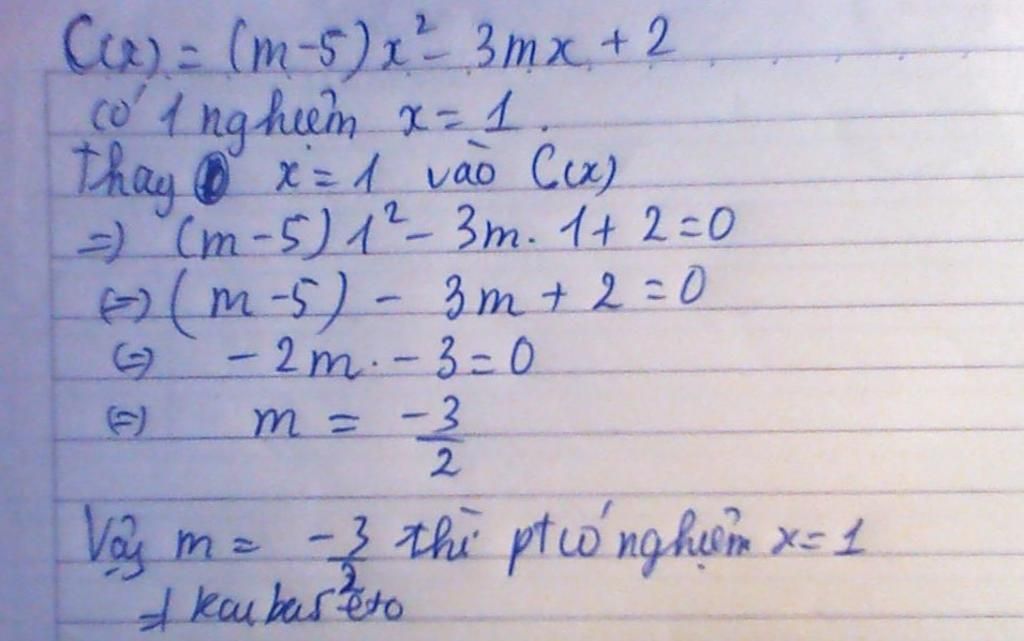 C(x) = (m-5)x² - 3mx + 2
có 1 nghiệm x = 1.
Thay x = 1 vào C(x)
=> (m-5)1² - 3m. 1 + 2 = 0
<=> (m-5) - 3m + 2 = 0
<=> -2m - 3 = 0
<=> m = -3/2
Vậy m = -3/2 thì pt có nghiệm x = 1